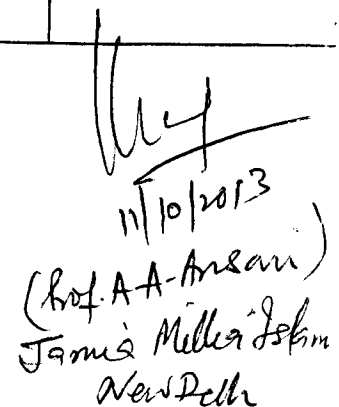 11/10/2013
(Prof. A-A-Ansari)
Jamia Millia Islam
New Delh